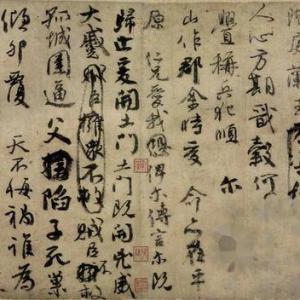 階庭蘭玉
人心方期戩穀何
釁稱兵犯順 爾
山作郡余時受命亦在平
原 仁兄愛我俾爾傳言爾既
歸止爰開土門土門既開凶威
大蹙賊臣擁眾不救
孤城圍逼父陷子死巢
傾卵覆 天不悔禍誰為